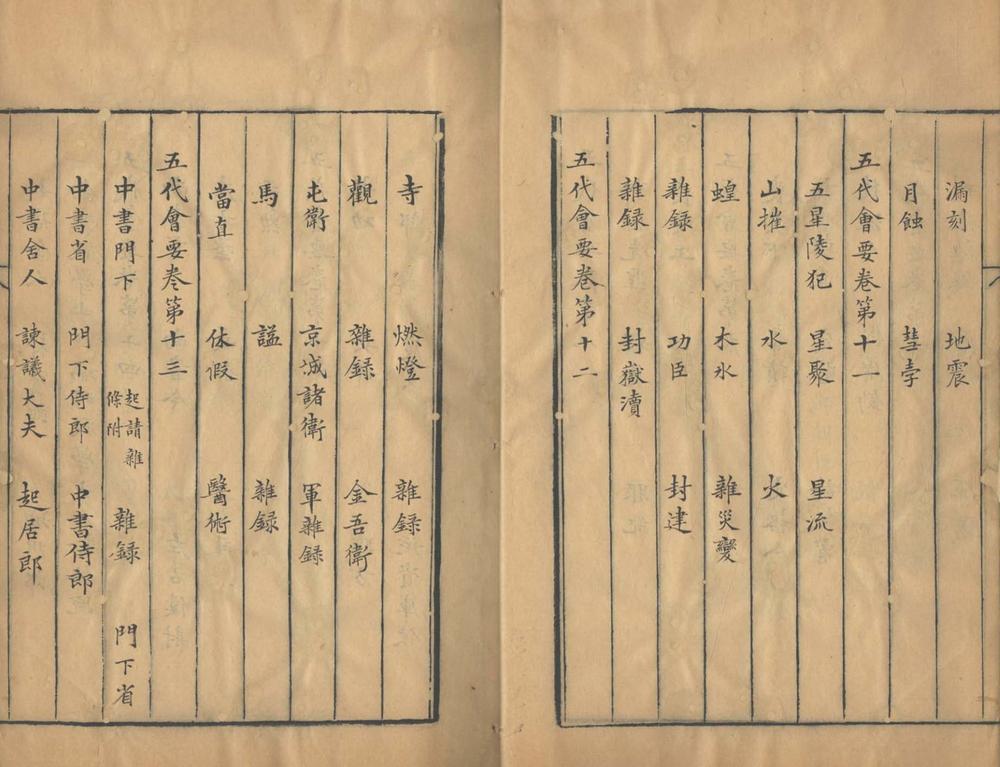 漏刻 地震
月蝕 彗孛
五代會要卷第十一
五星陵犯 星聚 星流
山摧 水 火
蝗 木氷 雜災變
雜録 功臣 封建
雜録 封嶽瀆
五代會要卷第十二
寺 燃燈 雜録
觀 雜録 金吾衛
屯衛 京城諸衛 軍雜録
馬 諡 雜録
當直 休假 醫術
五代會要卷第十三
中書門下 起請雜條附 雜録 門下省
中書省 門下侍郎 中書侍郎
中書舍人 諫議大夫 起居郎